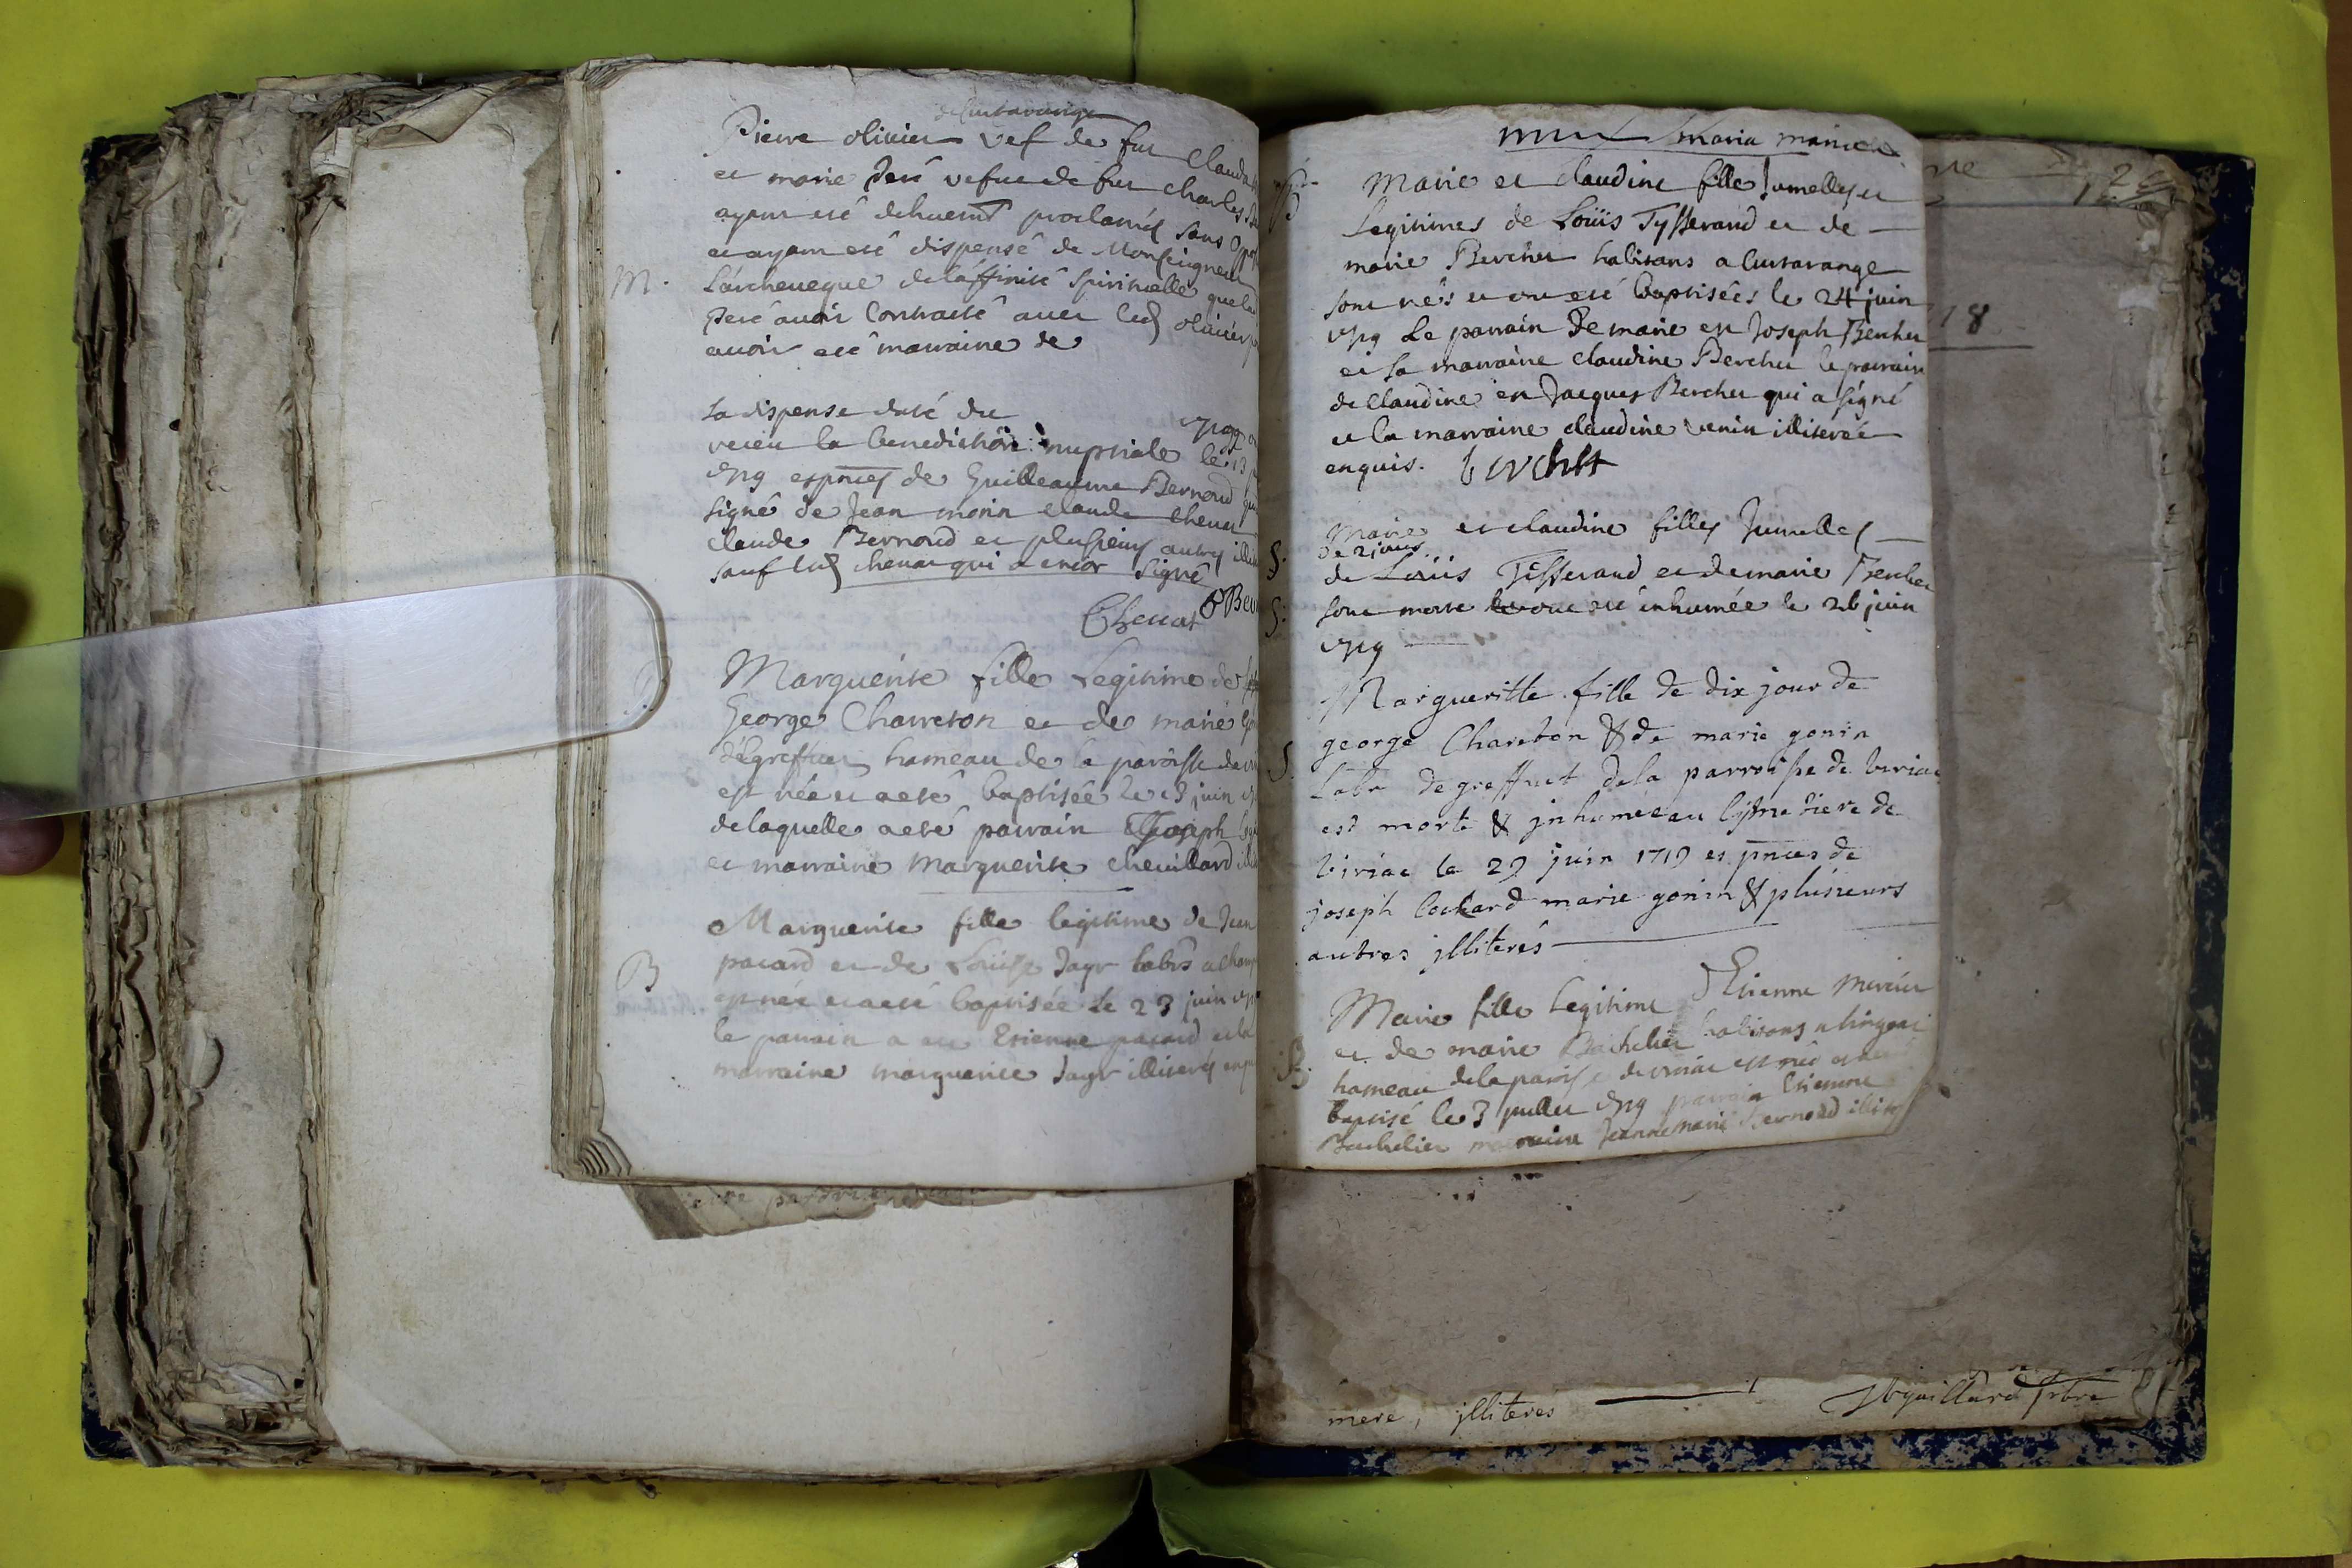 de Curtavange
Pierre olivier vef de fue Claud
et marie Peré vefue de feu Charles
ayant esté dehuemt proclamés sans oppo
et ayant esté dispensé de Monseigneur
M. L'archeueque de l'affinité spirituelle que lad
Peré avoir Contracté avec led olivier p
avoir esté marraine de
La dispense daté du
receu la benediction nuptiale le 13
es pntes de Guilleaume Bernoud qui
signé de Jean morin claude Chenat
claude Bernoud et plusieurs autres illit
sauf led chenat qui a encor signé
Chenat Ber
B Marguerite fille Legitime de
George Charreton et de marie
degreffuet hameau de la paroisse de vi
est née et a esté baptisée le 13 juin
de laquelle a esté parrain Joseph
et marraine Marguerite chevillard ill
Marguerite fille legitime de Jean
B pacard et de Loüise Jayr labrs a
est née et a esté baptisée le 23 juin
le parrain a esté Etienne pacard et la
marraine marguerite Jayr illiterés enq
maria
Marie et claudine fille Jumelles et
Legitimes de Loüis Tysserand et de
marie Bercher habitans a Curtavange
sont nés et ont esté baptisées le 24 juin
Le parrain de marie est Joseph Bercher
et sa marraine claudine Bercher le parrain
de claudine est Jacques Bercher qui a signé
et la marraine claudine venin illiterée
enquis. berchet
Marie et claudine filles Jumelles
de 2 jours
S: de Loüis Tisserand et de marie Bercher
S: sont morte et ont esté inhumée le 26 juin
Margueritte fille de dix jour de
george Chareton & de marie gonin
S. labr degreffuet dela parroisse de viriac
est morte & jnhumée au Cymetiere de
viriac le 23 juin 1719 es pntes de
joseph Cochard marie gonin & plusieurs
autres jlliterés
Marie fille Legitime d'Etienne Mercier
et de marie Bachelier habitans a
B. hameau de la paroisse de viriac est née et a esté
baptisé le 3 juillet parrain Etienne
Bachelier marraine Jeanne marie Bernoud illit
18
mere, jlliteres